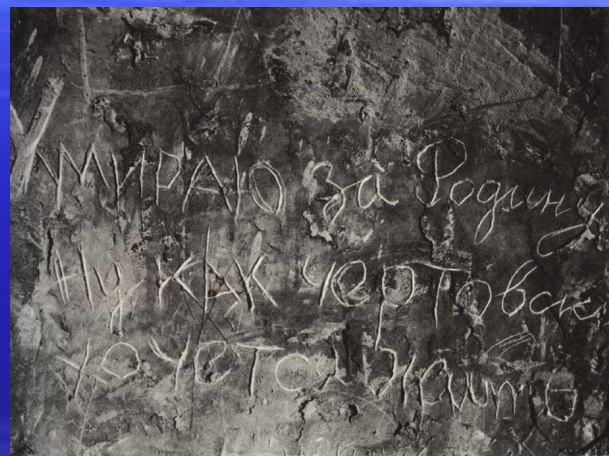 УМИРАЮ за Родину
Ну КАК чеРТовск
хочеТся жить